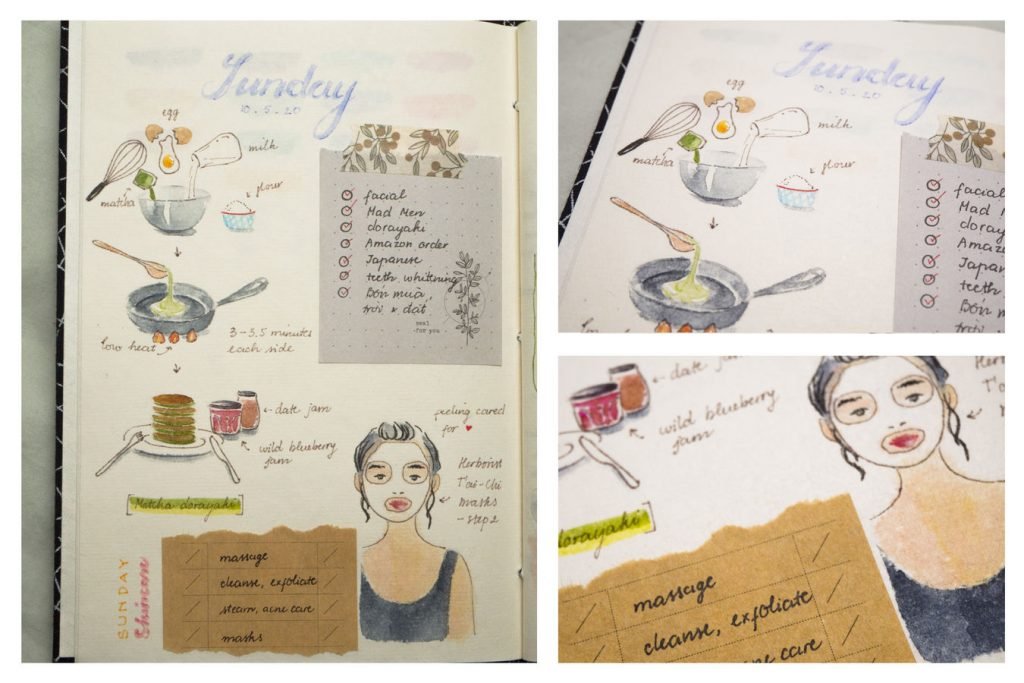 Sunday
10.5.20
egg
milk
matcha
flour
facial
Mad Men
dorayaki
Amazon order
Japanese
teeth whitening
Bốn mùa,
trời & đất
real
for you
low heat
3-3.5 minutes
each side
date jam
wild blueberry
jam
Matcha dorayaki
feeling cared
for
Herborist
T'ai-Chi
masks
- step 2
SUNDAY
massage
cleanse, exfoliate
steam, acne care
masks
Sunday
10.5.20
egg
milk
matcha
flour
facial
Mad M
dorayaki
Amazo
Japan
teeth
Bốn m
trời
date jam
wild blueberry
jam
Herbo
T'ai-
ma
dorayaki
massage
cleanse, exfoliate
ne care